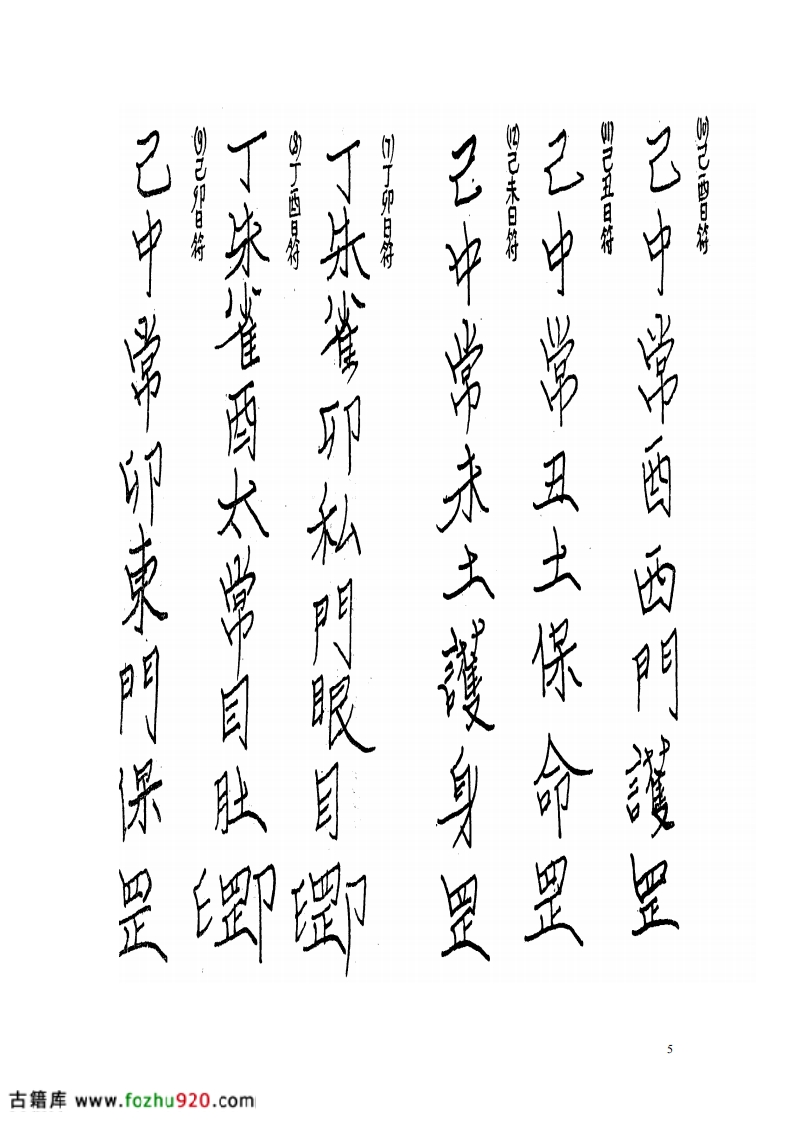 (10)己酉日符
己中常酉西門護罡
(11)己丑日符
己中常丑土保命罡
(12)己未日符
己中常未土護身罡
(7)丁卯日符
丁朱雀卯私門眼目
(8)丁酉日符
丁朱雀酉太常目肚
(9)己卯日符
己中常卯東門保罡
5
古籍库 www.fozhu920.com